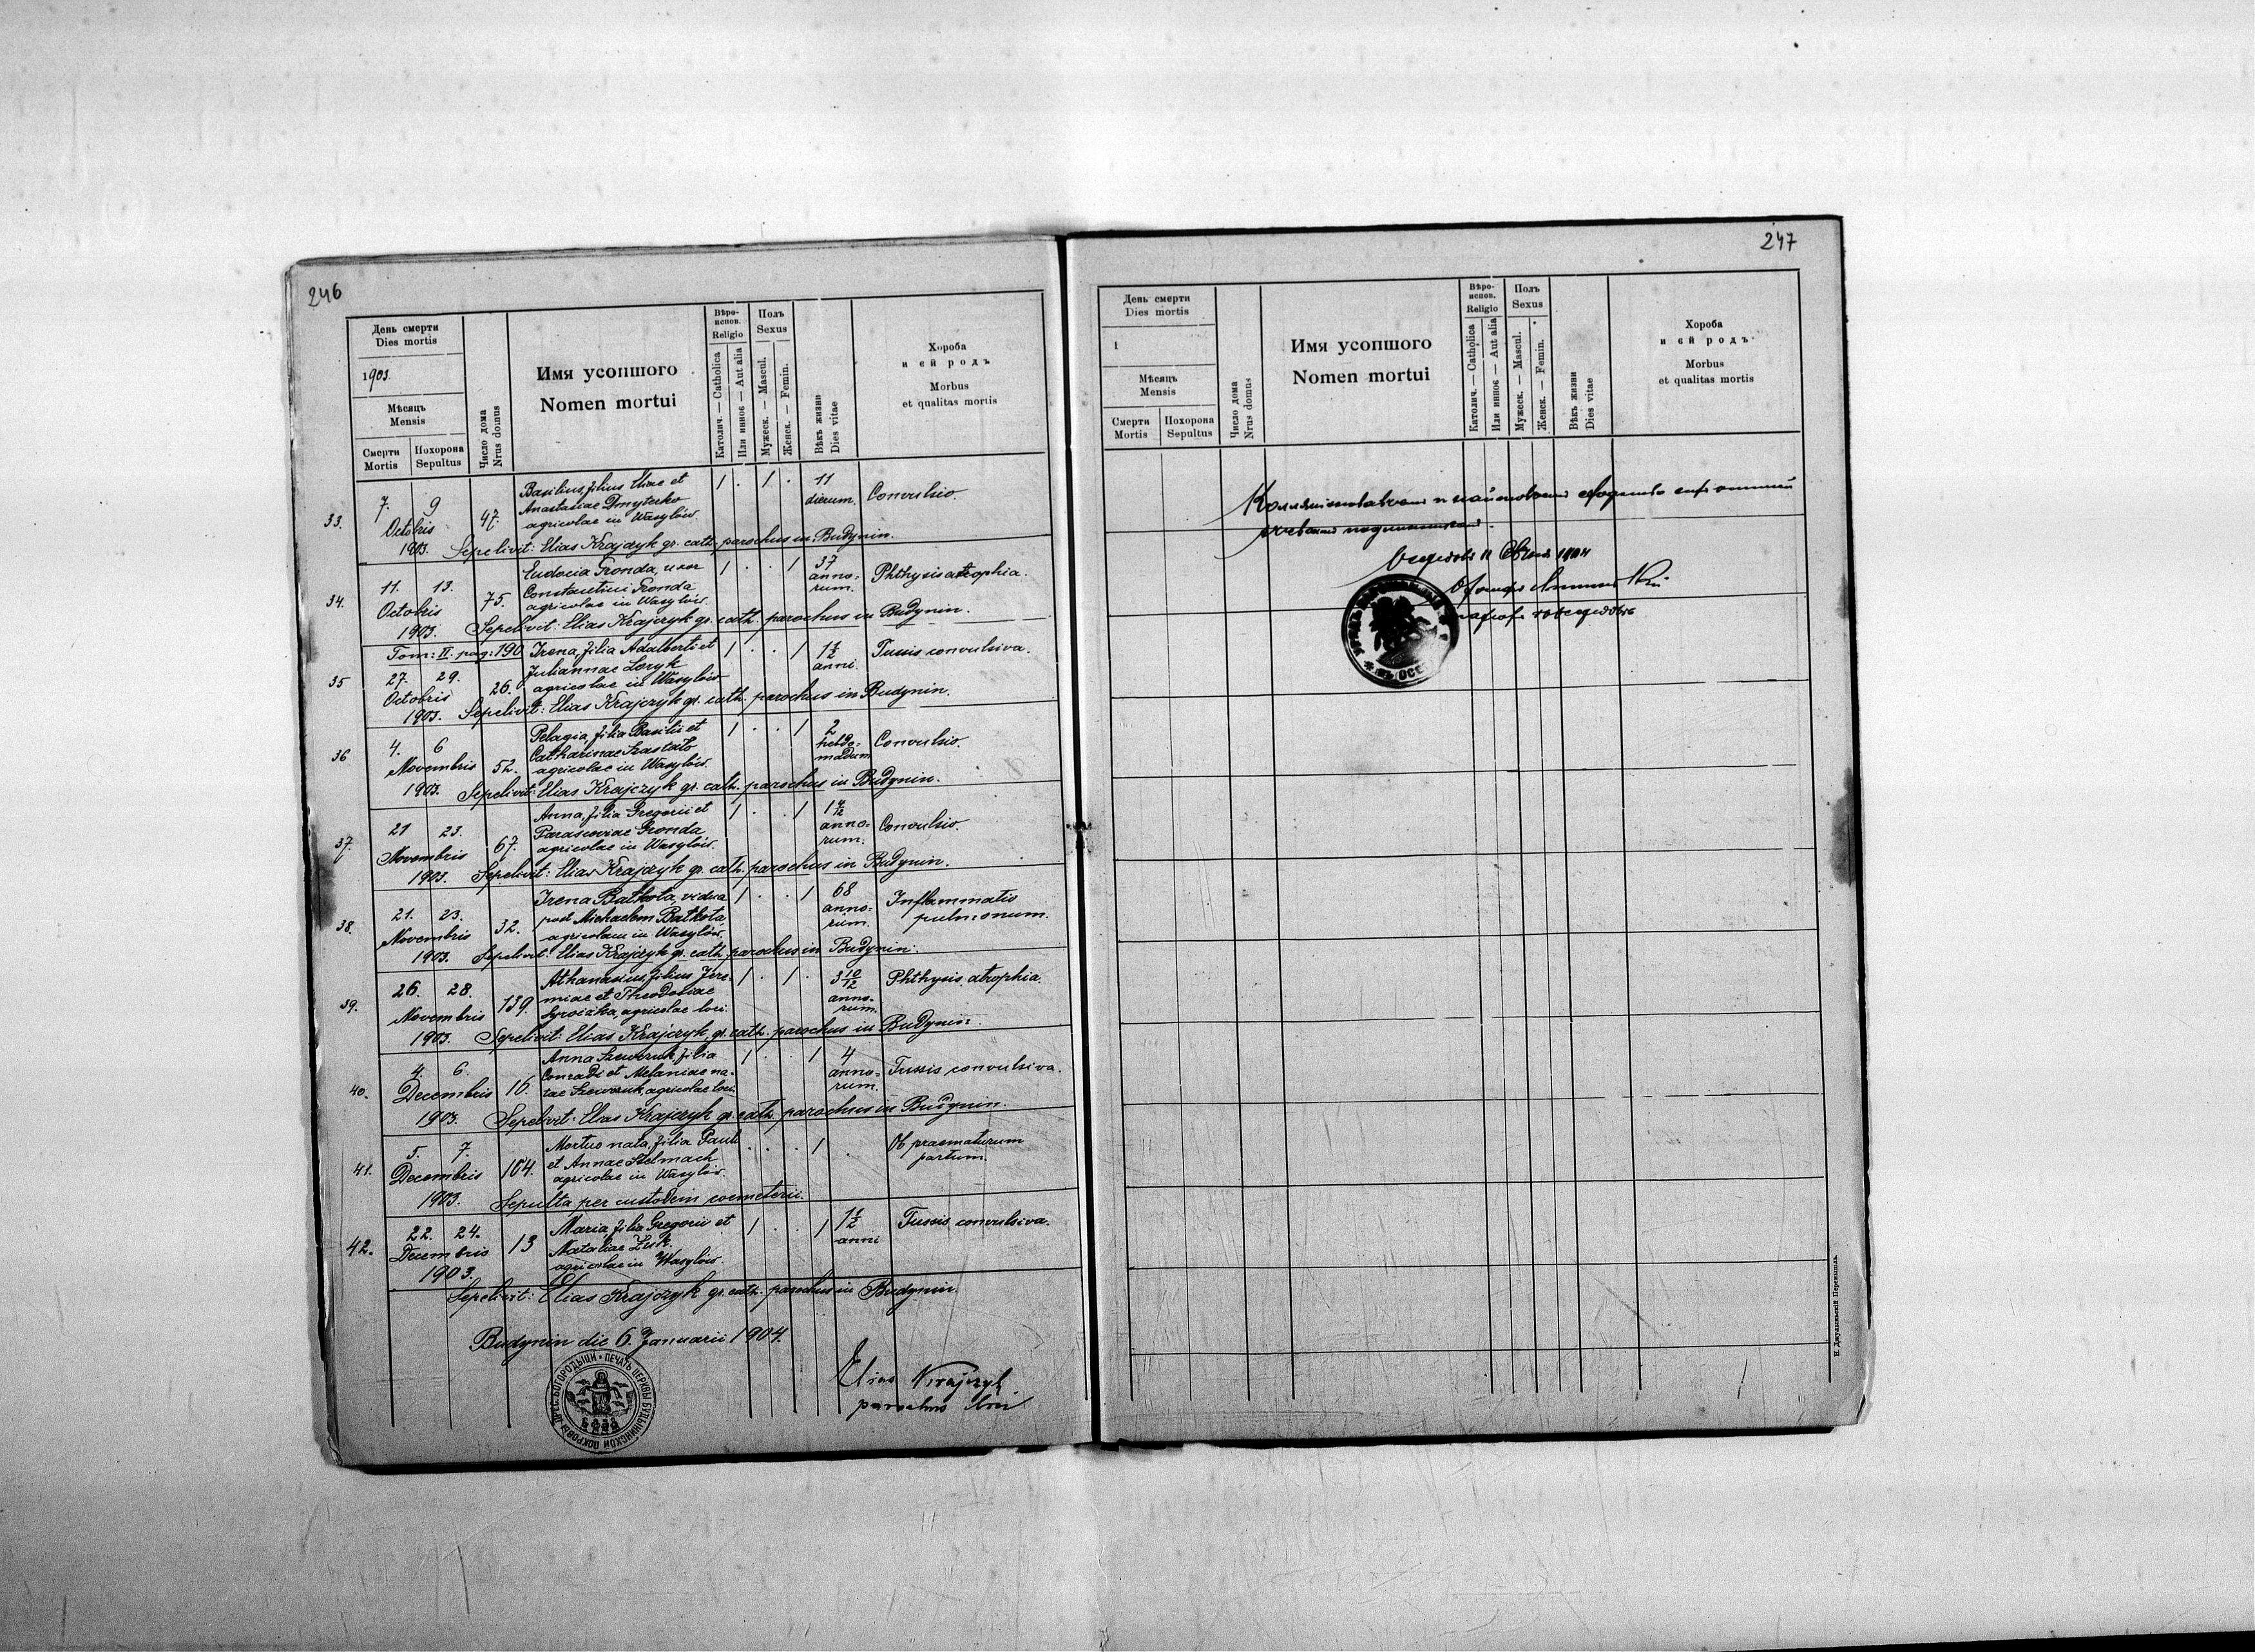 246
День смерти
Dies mortis
1903.
Мѣсяцъ
Mensis
Смерти
Mortis
Похорона
Sepultus
Число дома
Nrus domus
Имя усопшого
Nomen mortui
Вѣро-
испов.
Religio
Католич. — Catholica
Или инноє — Aut alia
Полъ
Sexus
Мужеск. — Mascul.
Женск. — Femin.
Вѣкъ жизни
Dies vitae
Хороба
и єй родъ
Morbus
et qualitas mortis
33. 7. 9 Octobris 1903. 47. Basilius, filius Eliae et
Anastasiae Dmytrcko
agricolae in Wasylów. 1 . 1 . 11 dierum. Convulsio.
Sepelivit: Elias Krajczyk gr. cath. parochus in Budynin.
34. 11. 13. Octobris 1903. 75. Eudocia Gronda, uxor
Constantini Gronda
agricolae in Wasylów. 1 . . 1 37 anno-
rum. Phthysis atrophia.
Sepelivit: Elias Krajczyk gr. cath. parochus in Budynin.
Tom: II. pag: 190
35 27. 29. Octobris 1903. 26. Irena, filia Adalberti et
Juliannae Loryk
agricolae in Wasylów. 1 . . 1 1 1/2 anni. Tussis convulsiva.
Sepelivit: Elias Krajczyk gr. cath. parochus in Budynin.
36 4. 6 Novembris 1903. 52. Pelagia, filia Basilii et
Catharinae
agricolae in Wasylów. 1 . . 1 2 hebdo-
madum Convulsio.
Sepelivit: Elias Krajczyk gr. cath. parochus in Budynin.
37. 21 23. Novembris 1903. 67. Anna, filia Gregorii et
Parasceviae Gronda
agricolae in Wasylów. 1 . . 1 anno-
rum. Convulsio.
Sepelivit: Elias Krajczyk gr. cath. parochus in Budynin.
38. 21. 23. Novembris 1903. 32. Irena Batkota, vidua
post Michaelem Batkota
agricolam in Wasylów. 1 . . 1 68 anno-
rum. Inflammatio
pulmonum.
Sepelivit: Elias Krajczyk gr. cath. parochus in Budynin.
39. 26. 28. Novembris 1903. 139. Athanasius, filius Jere-
miae et Theodosiae
agricolae loci. 1 . 1 . 3 10/12 anno-
rum. Phthysis atrophia.
Sepelivit: Elias Krajczyk, gr. cath. parochus in Budynin.
40. 4. 6. Decembris 1903. 16. Anna Szewczuk, filia
Conradi et Melaniae na-
tae Szewczuk, agricolae loci. 1 . . 1 4 anno-
rum. Tussis convulsiva.
Sepelivit: Elias Krajczyk gr. cath. parochus in Budynin.
41. 5. 7. Decembris 1903. 104. Mortuo nata, filia Pauli
et Annae Stelmach
agricolae in Wasylów. . . . 1 . Ob praematurum
partum.
Sepulta per custodem coemeterii.
42. 22. 24. Decembris 1903. 13 Maria, filia Gregorii et
Nataliae Żuk
agricolae in Wasylów. 1 . . 1 1 1/2 anni Tussis convulsiva.
Sepelivit: Elias Krajczyk gr. cath. parochus in Budynin.
Budynin die 6. Januarii 1904.
Elias Krajczyk
parochus loci
ПЕЧАТЬ ЦЕРКВЫ БУДЫНИНСКОЙ ПОКРОВЫ ПРЕС. БОГОРОДЫЦИ
247
День смерти
Dies mortis
1
Мѣсяцъ
Mensis
Смерти
Mortis
Похорона
Sepultus
Число дома
Nrus domus
Имя усопшого
Nomen mortui
Вѣро-
испов.
Religio
Католич. — Catholica
Или инноє — Aut alia
Полъ
Sexus
Мужеск. — Mascul.
Женск. — Femin.
Вѣкъ жизни
Dies vitae
Хороба
и єй родъ
Morbus
et qualitas mortis
11 1904
Н. Джулыньскій Перемышль.